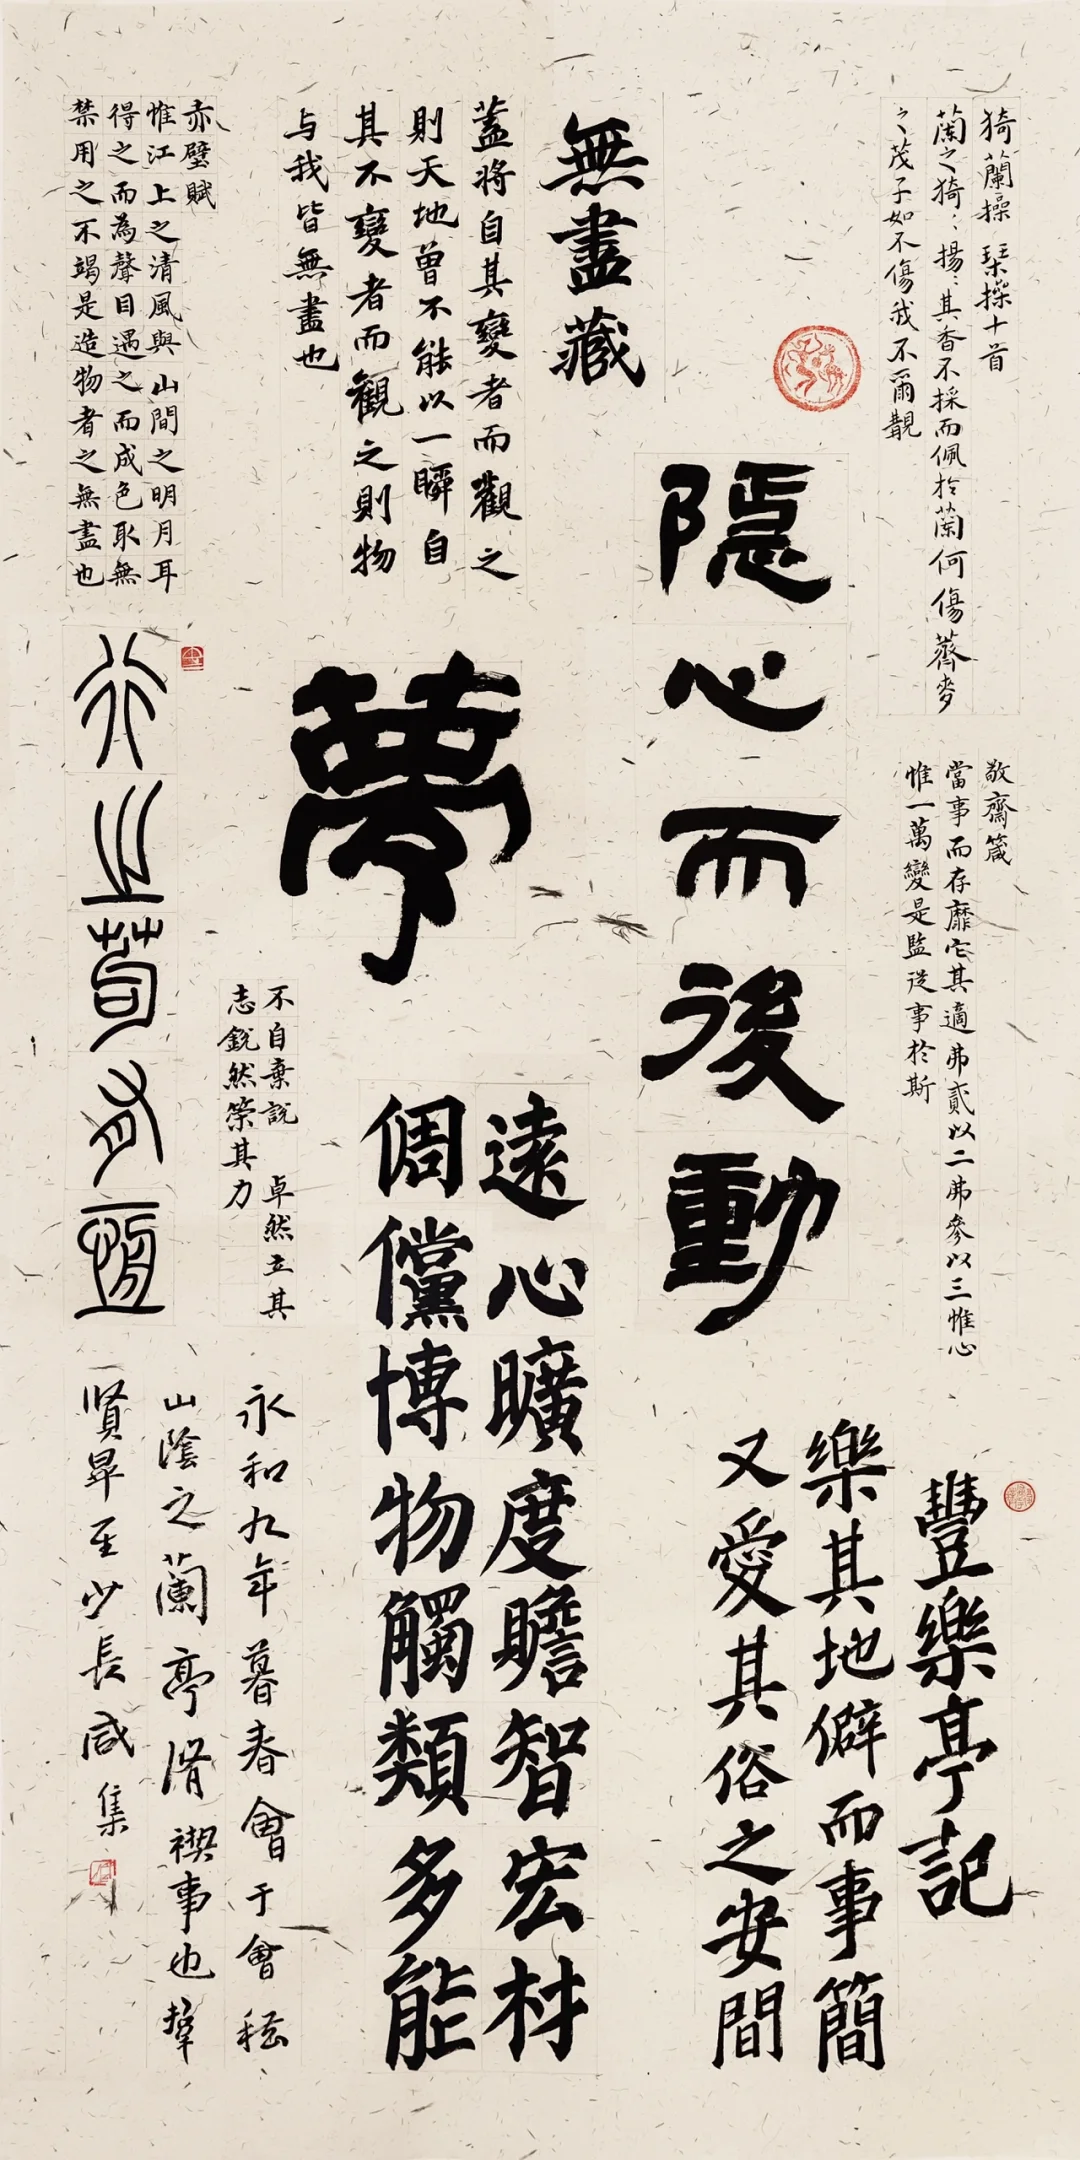 猗蘭操 琴操十首
蘭之猗ミ揚ミ其香不採而佩於蘭何傷薺麥
之茂子如不傷我不爾覯
無盡藏
蓋將自其變者而觀之
則天地曾不能以一瞬自
其不變者而觀之則物
与我皆無盡也
赤壁賦
惟江上之清風與山間之明月耳
得之而為聲目遇之而成色取無
禁用之不竭是造物者之無盡也
隱心而後動
夢
行止苟有恆
敬齋箴
當事而存靡它其適弗貳以二弗參以三惟心
惟一萬變是監從事於斯
不自棄說 卓然立其
志銳然策其力
遠心曠度瞻智宏材
倜儻博物觸類多能
豐樂亭記
樂其地僻而事簡
又愛其俗之安閒
永和九年暮春會于會稽
山陰之蘭亭脩禊事也羣
賢畢至少長咸集